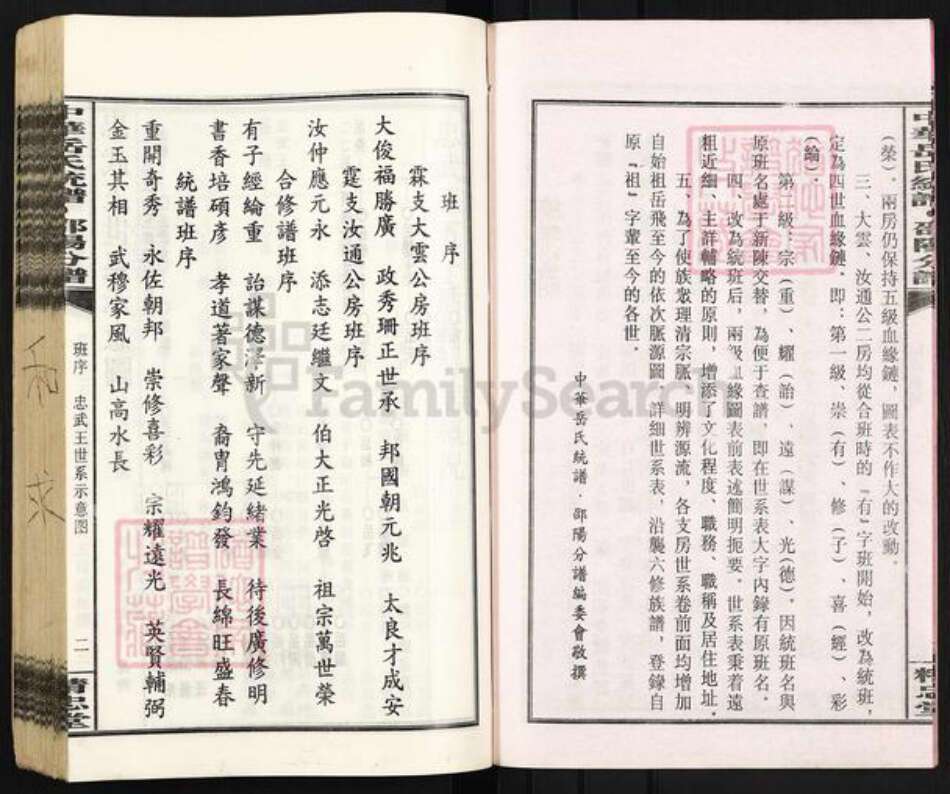 (榮)．兩房仍保持五級血緣鏈，圖表不作大的改動．
三、大雲、汝通公二房均從合班時的『有』字班開始，改為統班，
定為四世血緣鏈．即：第一級、崇(有)、修(子)、喜(經)、彩
(綸)．
第 級、宗(重)、耀(詒)、遠(謀)、光(德)．因統班名與
原班名處于新陳交替，為便于查譜，即在世系表大字內錄有原班名．
四、改為統班后，兩級血緣圖表前表述簡明扼要．世系表秉着遠
粗近細、主詳輔略的原則，增添了文化程度、職務、職稱及居住地址．
五、為了使族眾理清宗脈、明辨源流，各支房世系卷前面均增加
自始祖岳飛至今的依次脈源圖．詳細世系表，沿襲六修族譜，登錄自
原『祖』字輩至今的各世．
中華岳氏統譜·邵陽分譜編委會敬撰
中華岳氏統譜·邵陽分譜
精忠堂
班序
霖支大雲公房班序
大俊福勝廣 政秀珊正世承 邦國朝元兆 太良才成安
霆支汝通公房班序
汝仲應元永 添志廷繼文 伯大正光啓 祖宗萬世榮
合修譜班序
有子經綸重 詒謀德澤新 守先延緒業 待後廣修明
書香培碩彥 孝道著家聲 裔胄鴻鈞發 長綿旺盛春
統譜班序
重開奇秀 永佐朝邦 崇修喜彩 宗耀遠光 英賢輔弼
金玉其相 武穆家風 山高水長
中華岳氏統譜·邵陽分譜
班序 忠武王世系示意图
二
精忠堂
FamilySearch